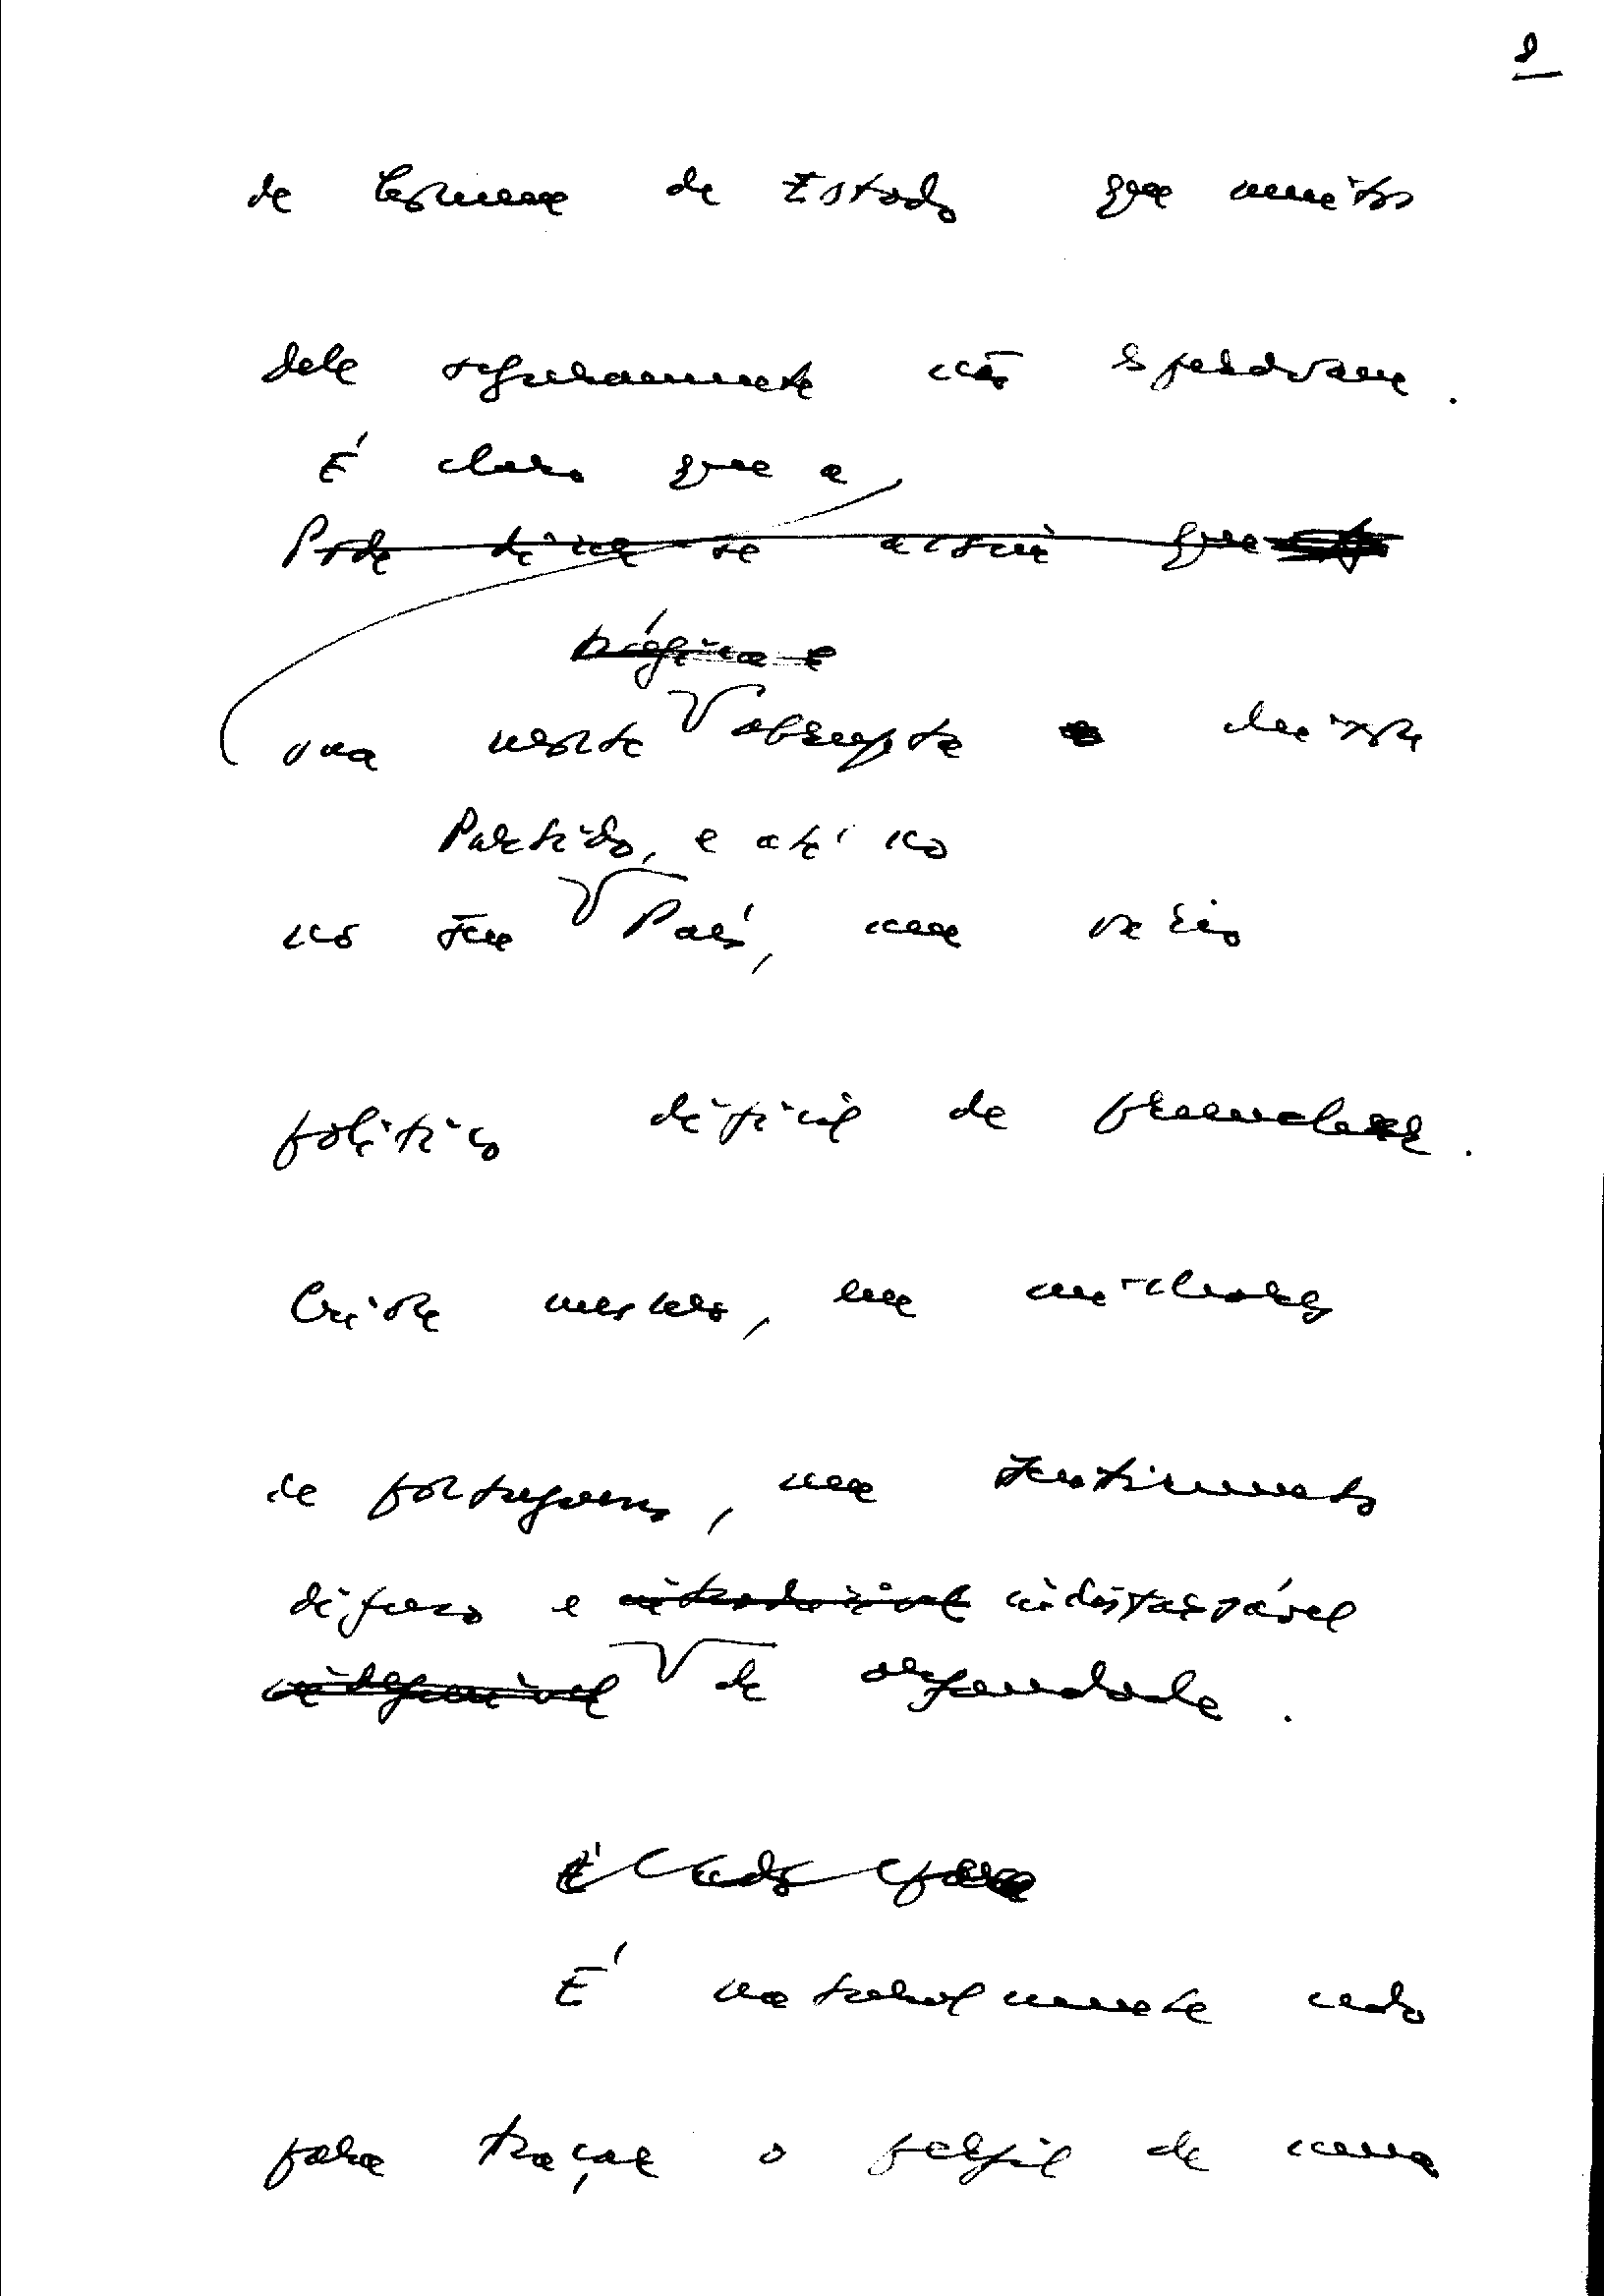 de homem de Estado que muitos
dele seguramente não esperavam.
É claro que a
Pode dizer-se assim que
trágica e
sua morte abrupta deixa
Partido, e até no
no seu País, um vazio
político difícil de preencher.
Criou mesmo, em milhões
de portugueses, um sentimento
difuso e indisfarçável
indefinível de orfandade.
É cedo para
É naturalmente cedo
para traçar o perfil de uma